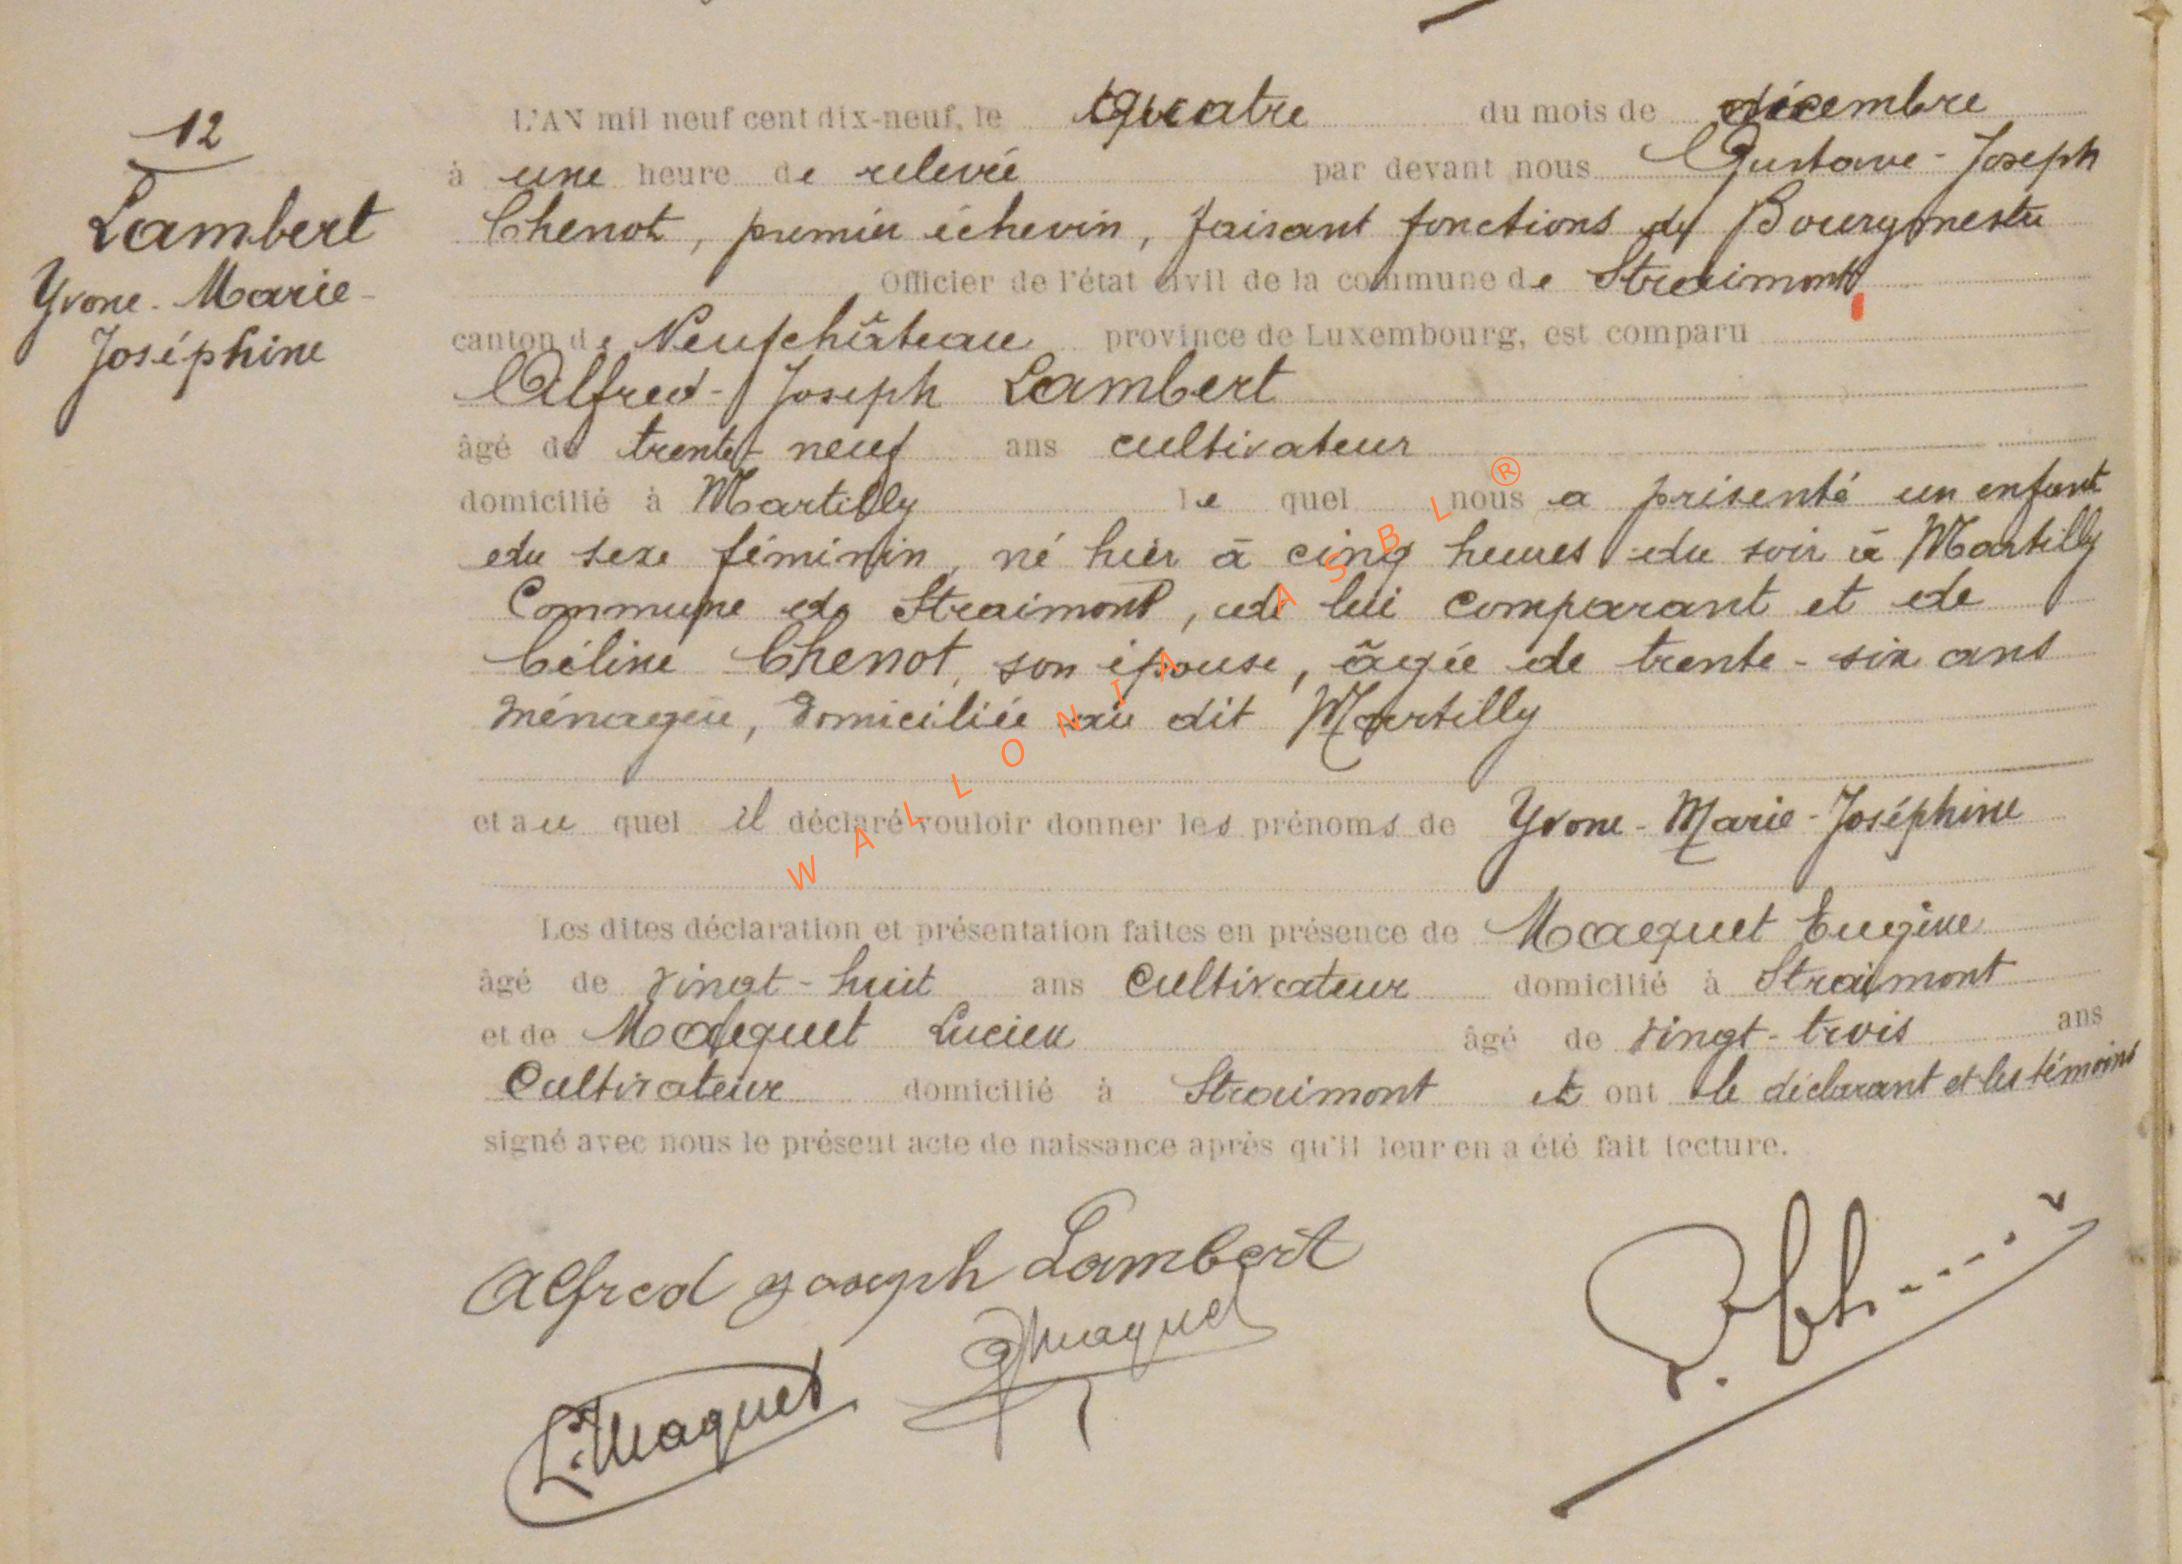 12
Lambert
Yvone-Marie-
Joséphine
L'AN mil neuf cent dix-neuf, le Quatre du mois de décembre
à une heure de relevée par devant nous Gustave-Joseph
Chenot, premier échevin, faisant fonctions de Bourgmestre
Officier de l'état civil de la commune de Straimont
canton de Neufchâteau province de Luxembourg, est comparu
Alfred-Joseph Lambert
âgé de trente-neuf ans cultivateur
domicilié à Martilly le quel nous a présenté un enfant
du sexe féminin, né hier à cinq heures du soir à Martilly
Commune de Straimont, de lui comparant et de
Céline Chenot, son épouse, âgée de trente-six ans
ménagère, domiciliée au dit Martilly
et au quel il déclaré vouloir donner les prénoms de Yvone-Marie-Joséphine
Les dites déclaration et présentation faites en présence de Maquet Eugène
âgé de vingt-huit ans Cultivateur domicilié à Straimont
et de Maquet Lucien âgé de vingt-trois ans
Cultivateur domicilié à Straimont et ont le déclarant et les témoins
signé avec nous le présent acte de naissance après qu'il leur en a été fait lecture.
Alfred Joseph Lambert
Maquet
L. Maquet
WALLONIA ASBL ®